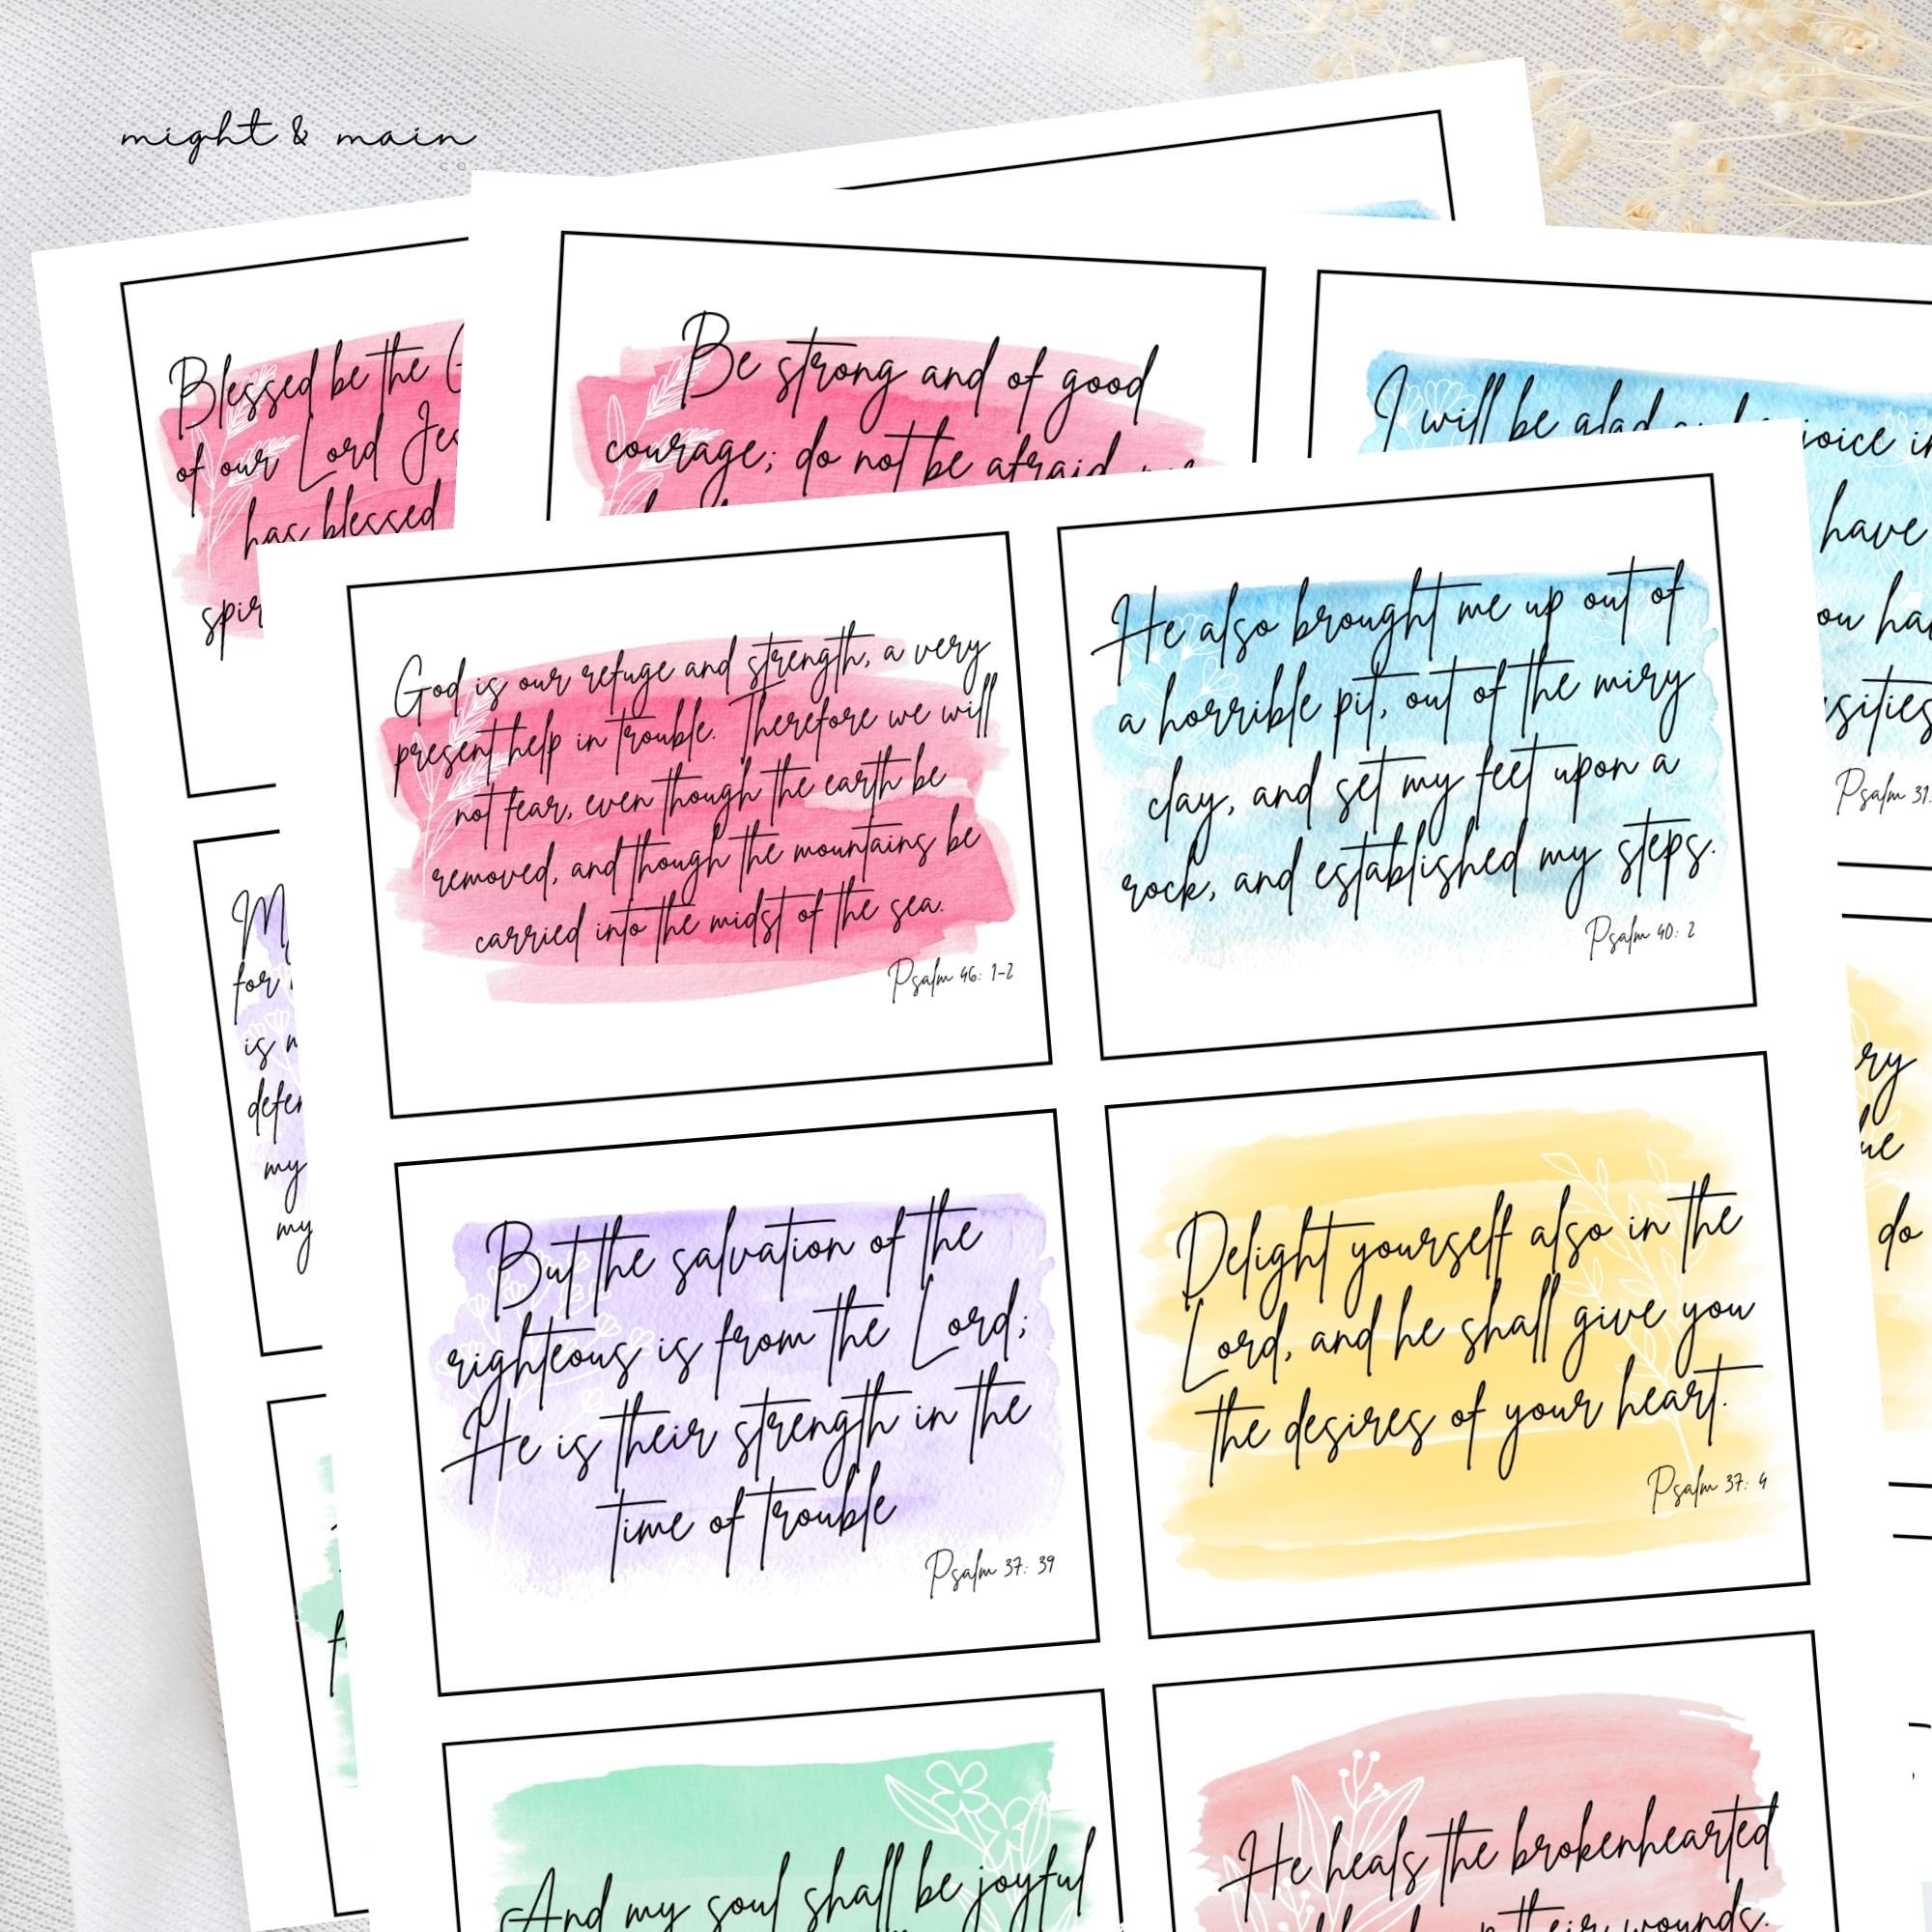 might & main
co
Blessed be the
of our Lord Jes
has blessed
spir
Be strong and of good
courage; do not be afraid
I will be glad and rejoice in
have
ou ha
sities
Psalm 31:
God is our refuge and strength, a very
present help in trouble. Therefore we will
not fear, even though the earth be
removed, and though the mountains be
carried into the midst of the sea.
Psalm 46: 1-2
He also brought me up out of
a horrible pit, out of the miry
clay, and set my feet upon a
rock, and established my steps.
Psalm 40: 2
for
is
defen
my
my
ry
ue
do
But the salvation of the
righteous is from the Lord;
He is their strength in the
time of trouble
Psalm 37: 39
Delight yourself also in the
Lord, and he shall give you
the desires of your heart.
Psalm 37: 4
And my soul shall be joyful
He heals the brokenhearted
their wounds.